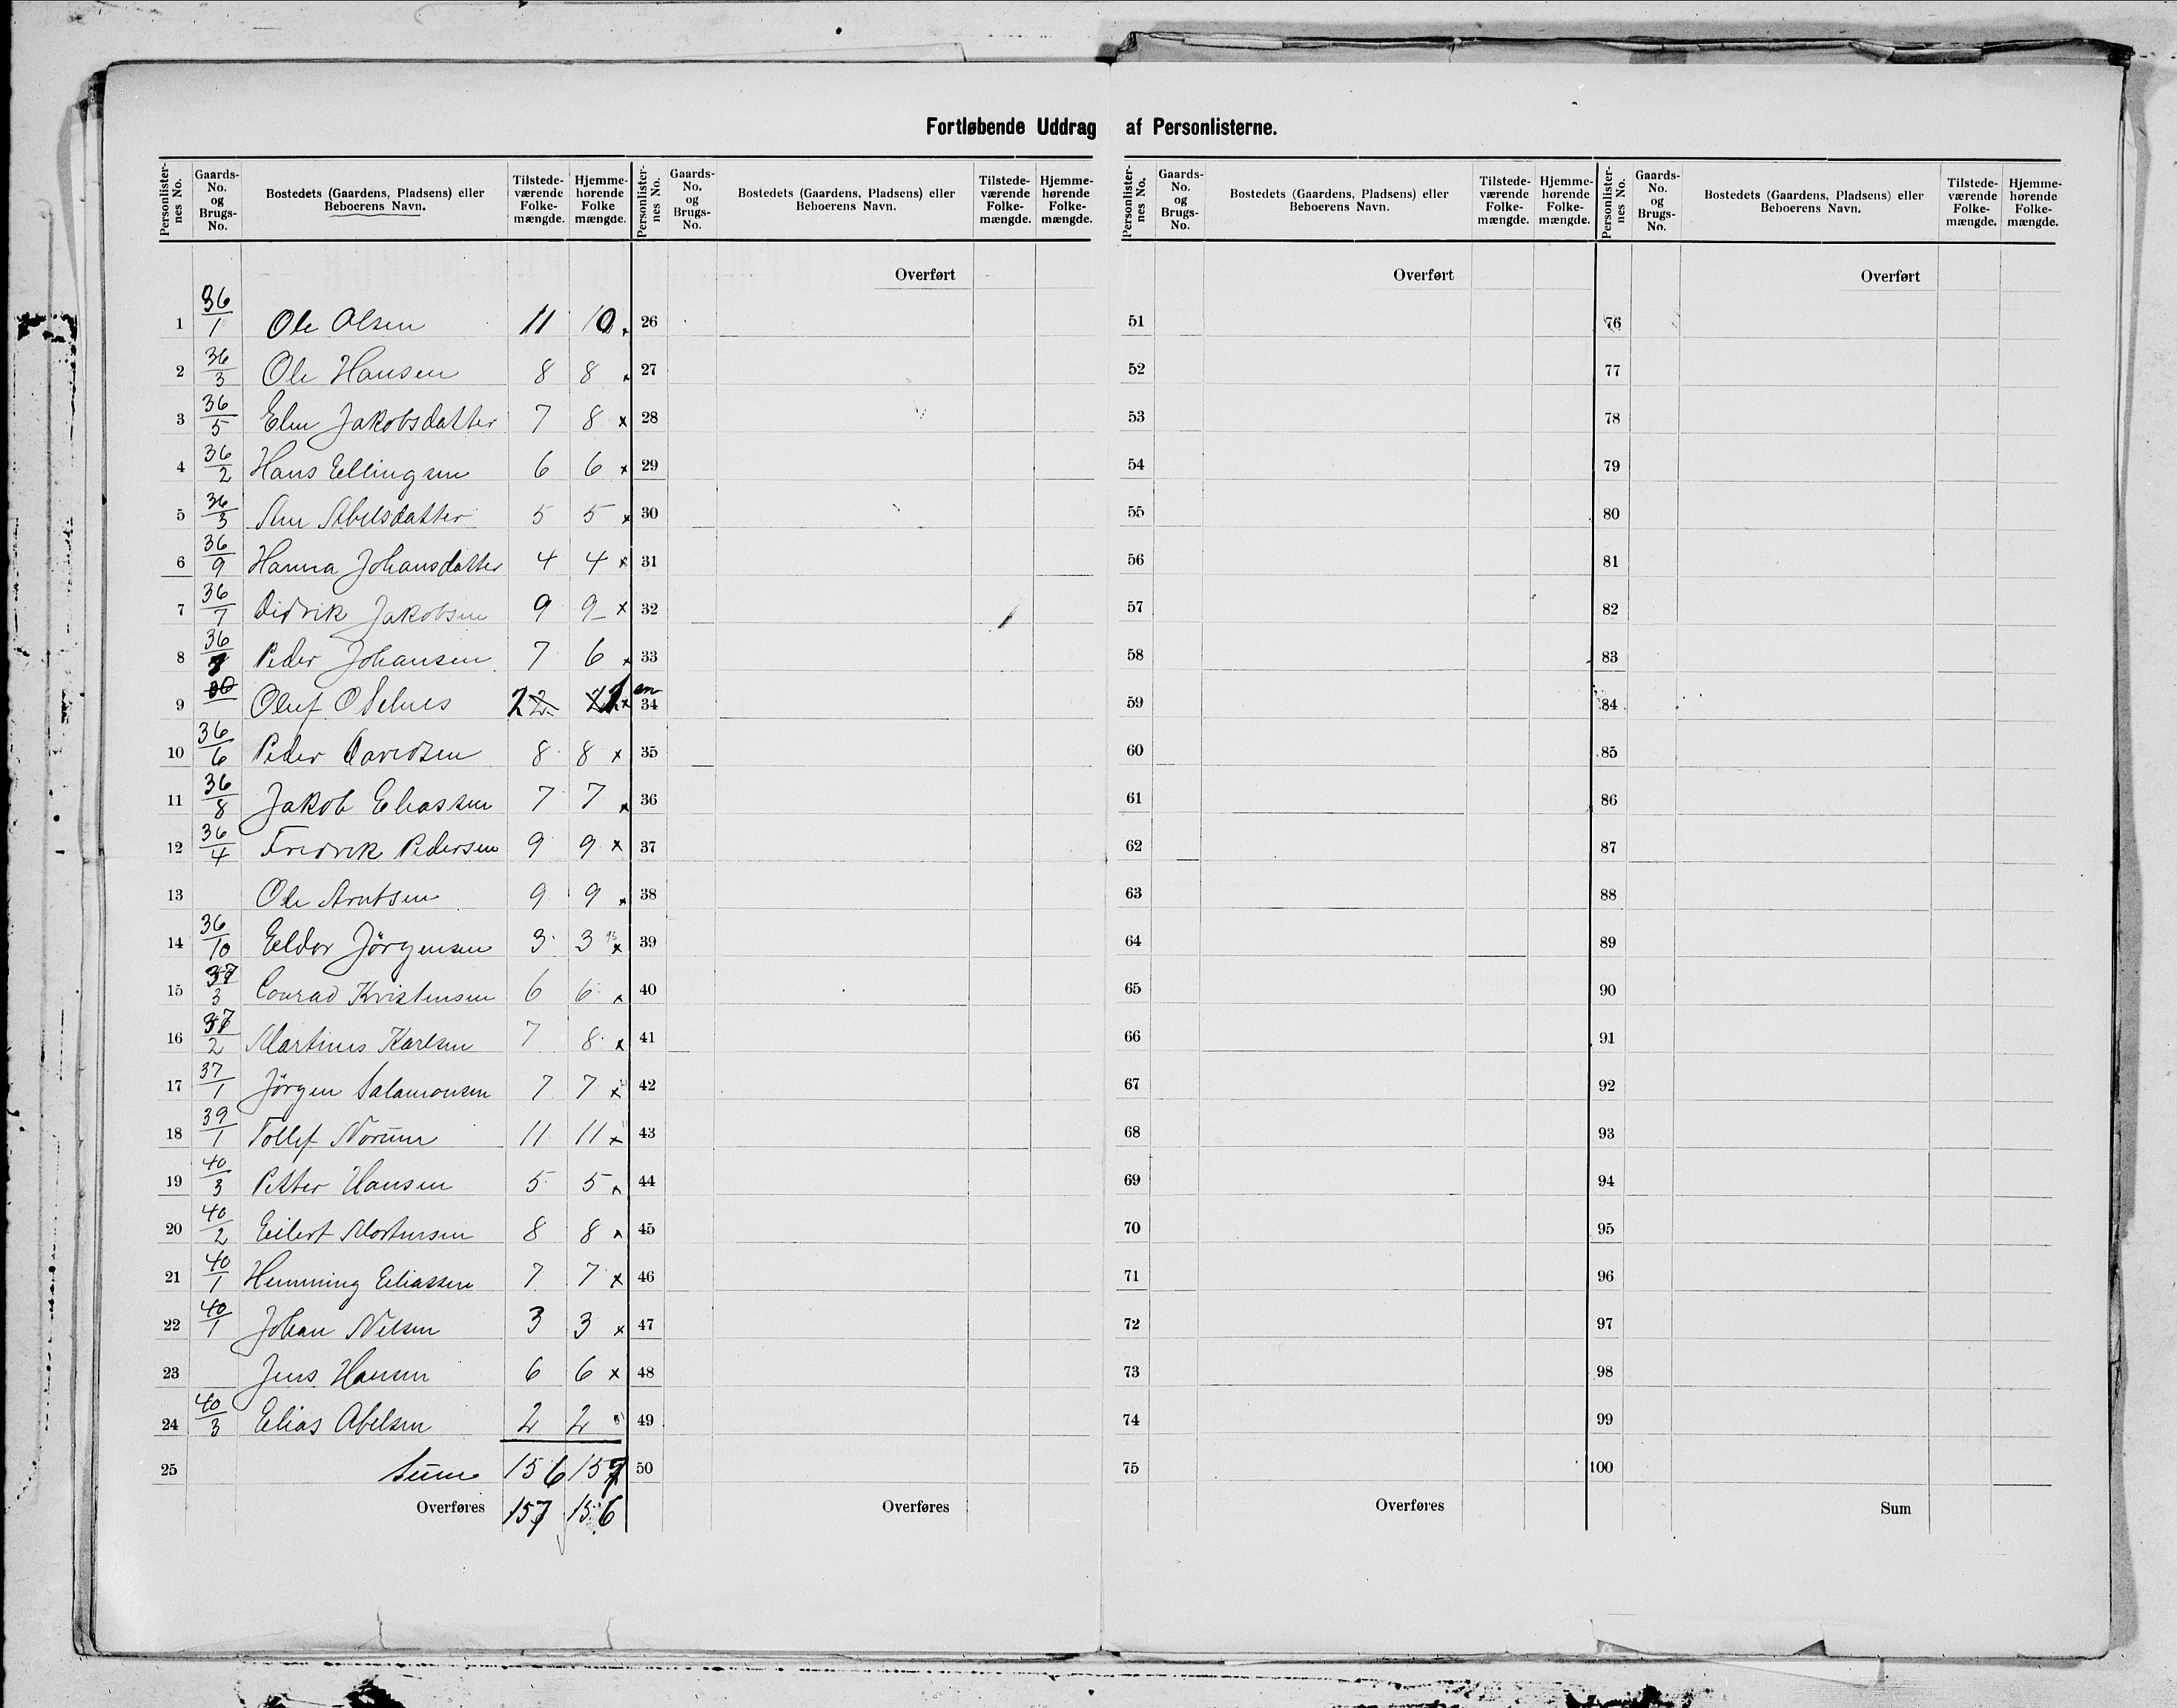 Fortløbende Uddrag af Personlisterne.
Personlister-nes No. | Gaards-No. og Brugs-No. | Bostedets (Gaardens, Pladsens) eller Beboerens Navn. | Tilstede-værende Folke-mængde. | Hjemme-hørende Folke mængde. | Personlister-nes No. | Gaards-No. og Brugs-No. | Bostedets (Gaardens, Pladsens) eller Beboerens Navn. | Tilstede-værende Folke-mængde. | Hjemme-hørende Folke-mængde. | Personlister-nes No. | Gaards-No. og Brugs-No. | Bostedets (Gaardens, Pladsens) eller Beboerens Navn. | Tilstede-værende Folke-mængde. | Hjemme-hørende Folke-mængde. | Personlister-nes No. | Gaards-No. og Brugs-No. | Bostedets (Gaardens, Pladsens) eller Beboerens Navn. | Tilstede-værende Folke-mængde. | Hjemme-hørende Folke-mængde.
Overført Overført Overført
1 36/1 Ole Olsen 11 10 26 51 76
2 36/3 Ole Hansen 8 8 27 52 77
3 36/5 Elen Jakobsdatter 7 8 x 28 53 78
4 36/2 Hans Ellingsen 6 6 x 29 54 79
5 36/3 Ane Abelsdatter 5 5 x 30 55 80
6 36/9 Hanna Johansdatter 4 4 x 31 56 81
7 36/7 Didrik Jakobsen 9 9 x 32 57 82
8 36 Peder Johansen 7 6 x 33 58 83
9 Oluf O 34 59 84
10 36/6 Peder Davidsen 8 8 x 35 60 85
11 36/8 Jakob Eliassen 7 7 x 36 61 86
12 36/4 Fredrik Pedersen 9 9 x 37 62 87
13 Ole Arntsen 9 9 x 38 63 88
14 36/10 Eeldor Jörgensen 3 3 x 39 64 89
15 37/3 Conrad Kristensen 6 6 x 40 65 90
16 37/2 Martinus Karlsen 7 8 x 41 66 91
17 37/1 Jörgen Salamonsen 7 7 x 42 67 92
18 39/1 Tollef Norum 11 11 x 43 68 93
19 40/3 Petter Hansen 5 5 x 44 69 94
20 40/2 Eilert Mortensen 8 8 x 45 70 95
21 40/1 Hemming Eeliassen 7 7 x 46 71 96
22 40/1 Johan Nilsen 3 3 x 47 72 97
23 Jens Hansen 6 6 x 48 73 98
24 40/3 Eelias Abelsen 2 2 49 74 99
25 Sum 156 157 50 75 100
Overføres 157 156 Overføres Overføres Sum